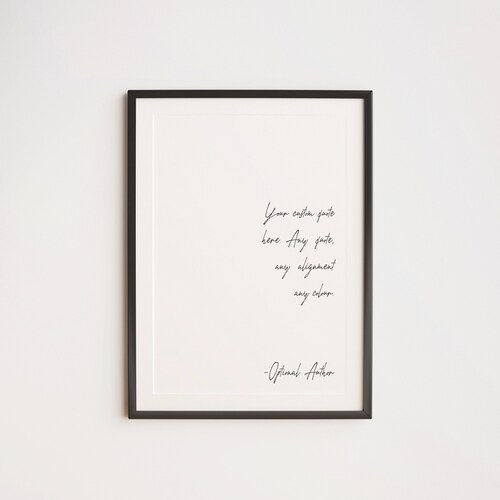 Your custom quote
here. Any quote,
any alignment
any colour.
-Optional Author